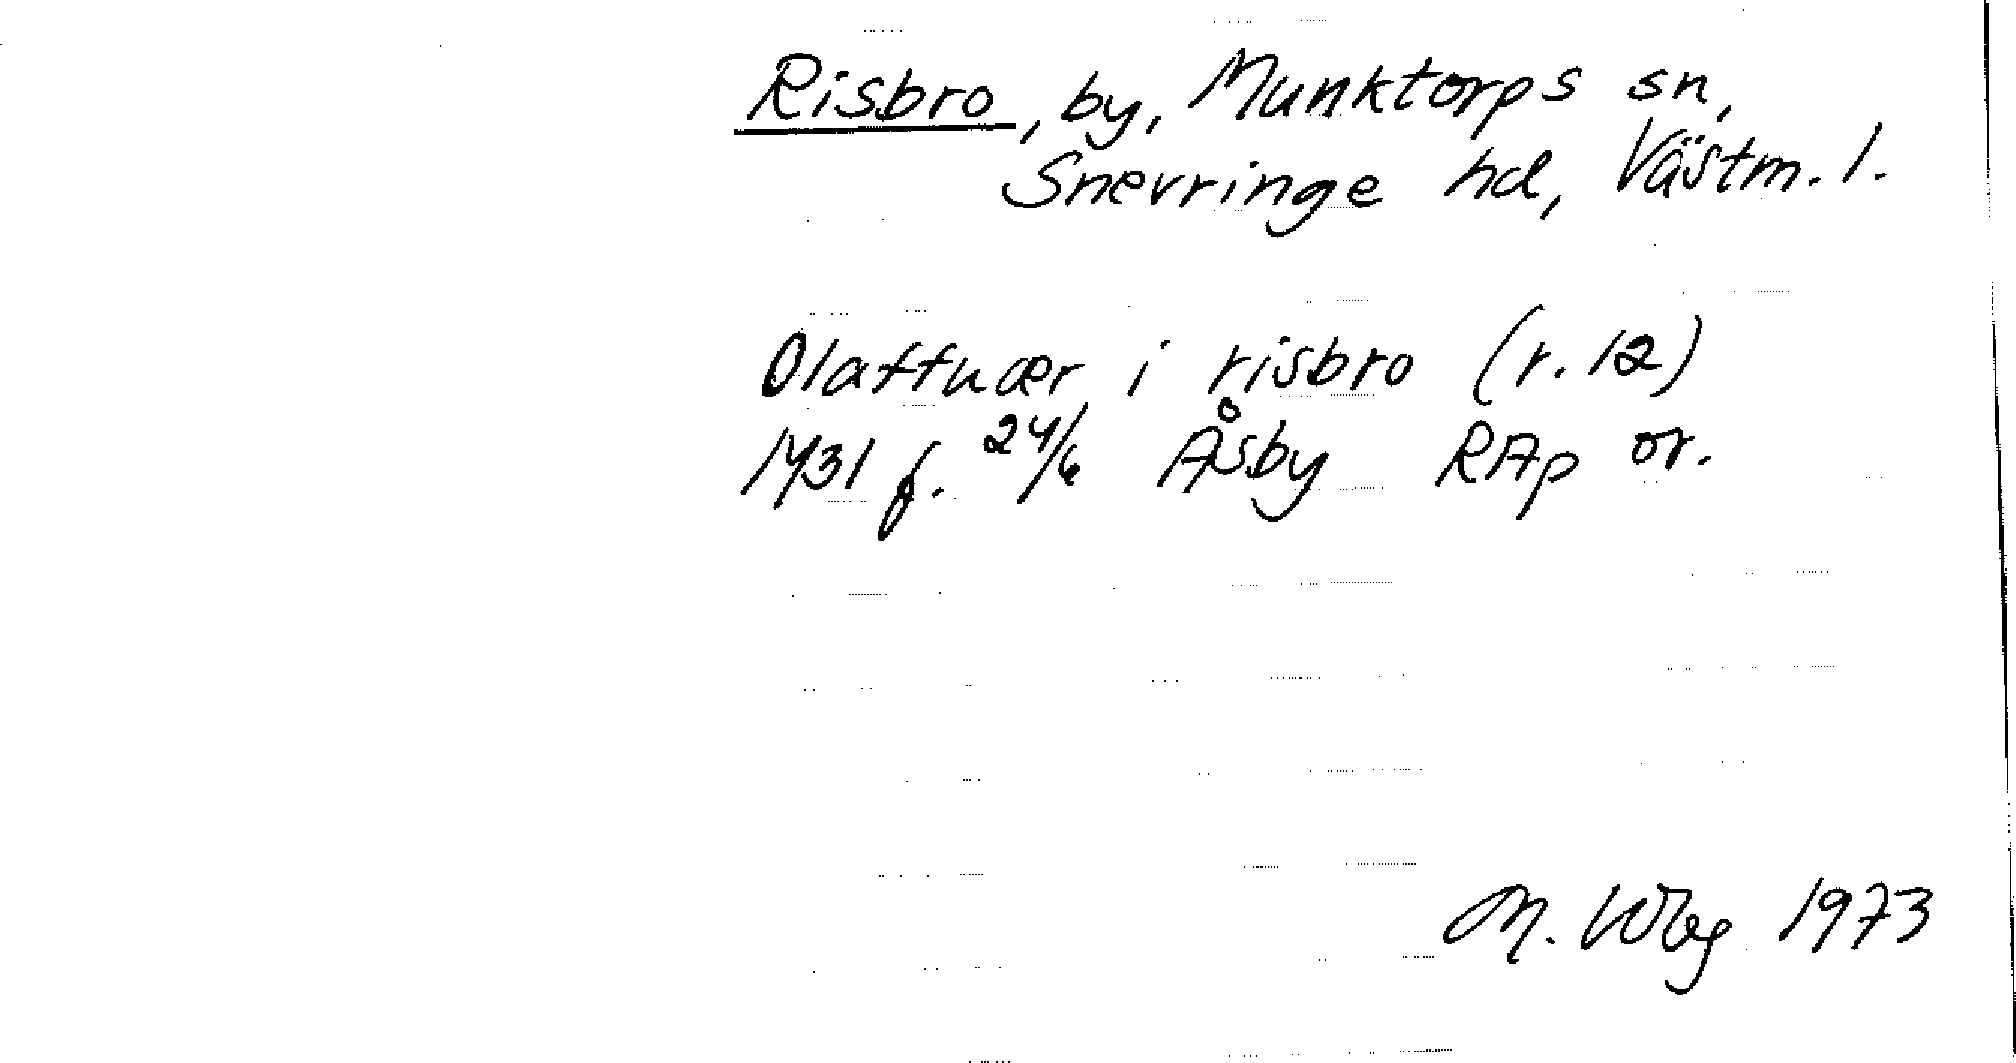 Risbro, by, Munktorps sn,
Snevringe hd, Västm. l.
Olaffuær i risbro (r. 12)
1431 f. 24/6 Åsby RAp or.
M. Wbg 1973